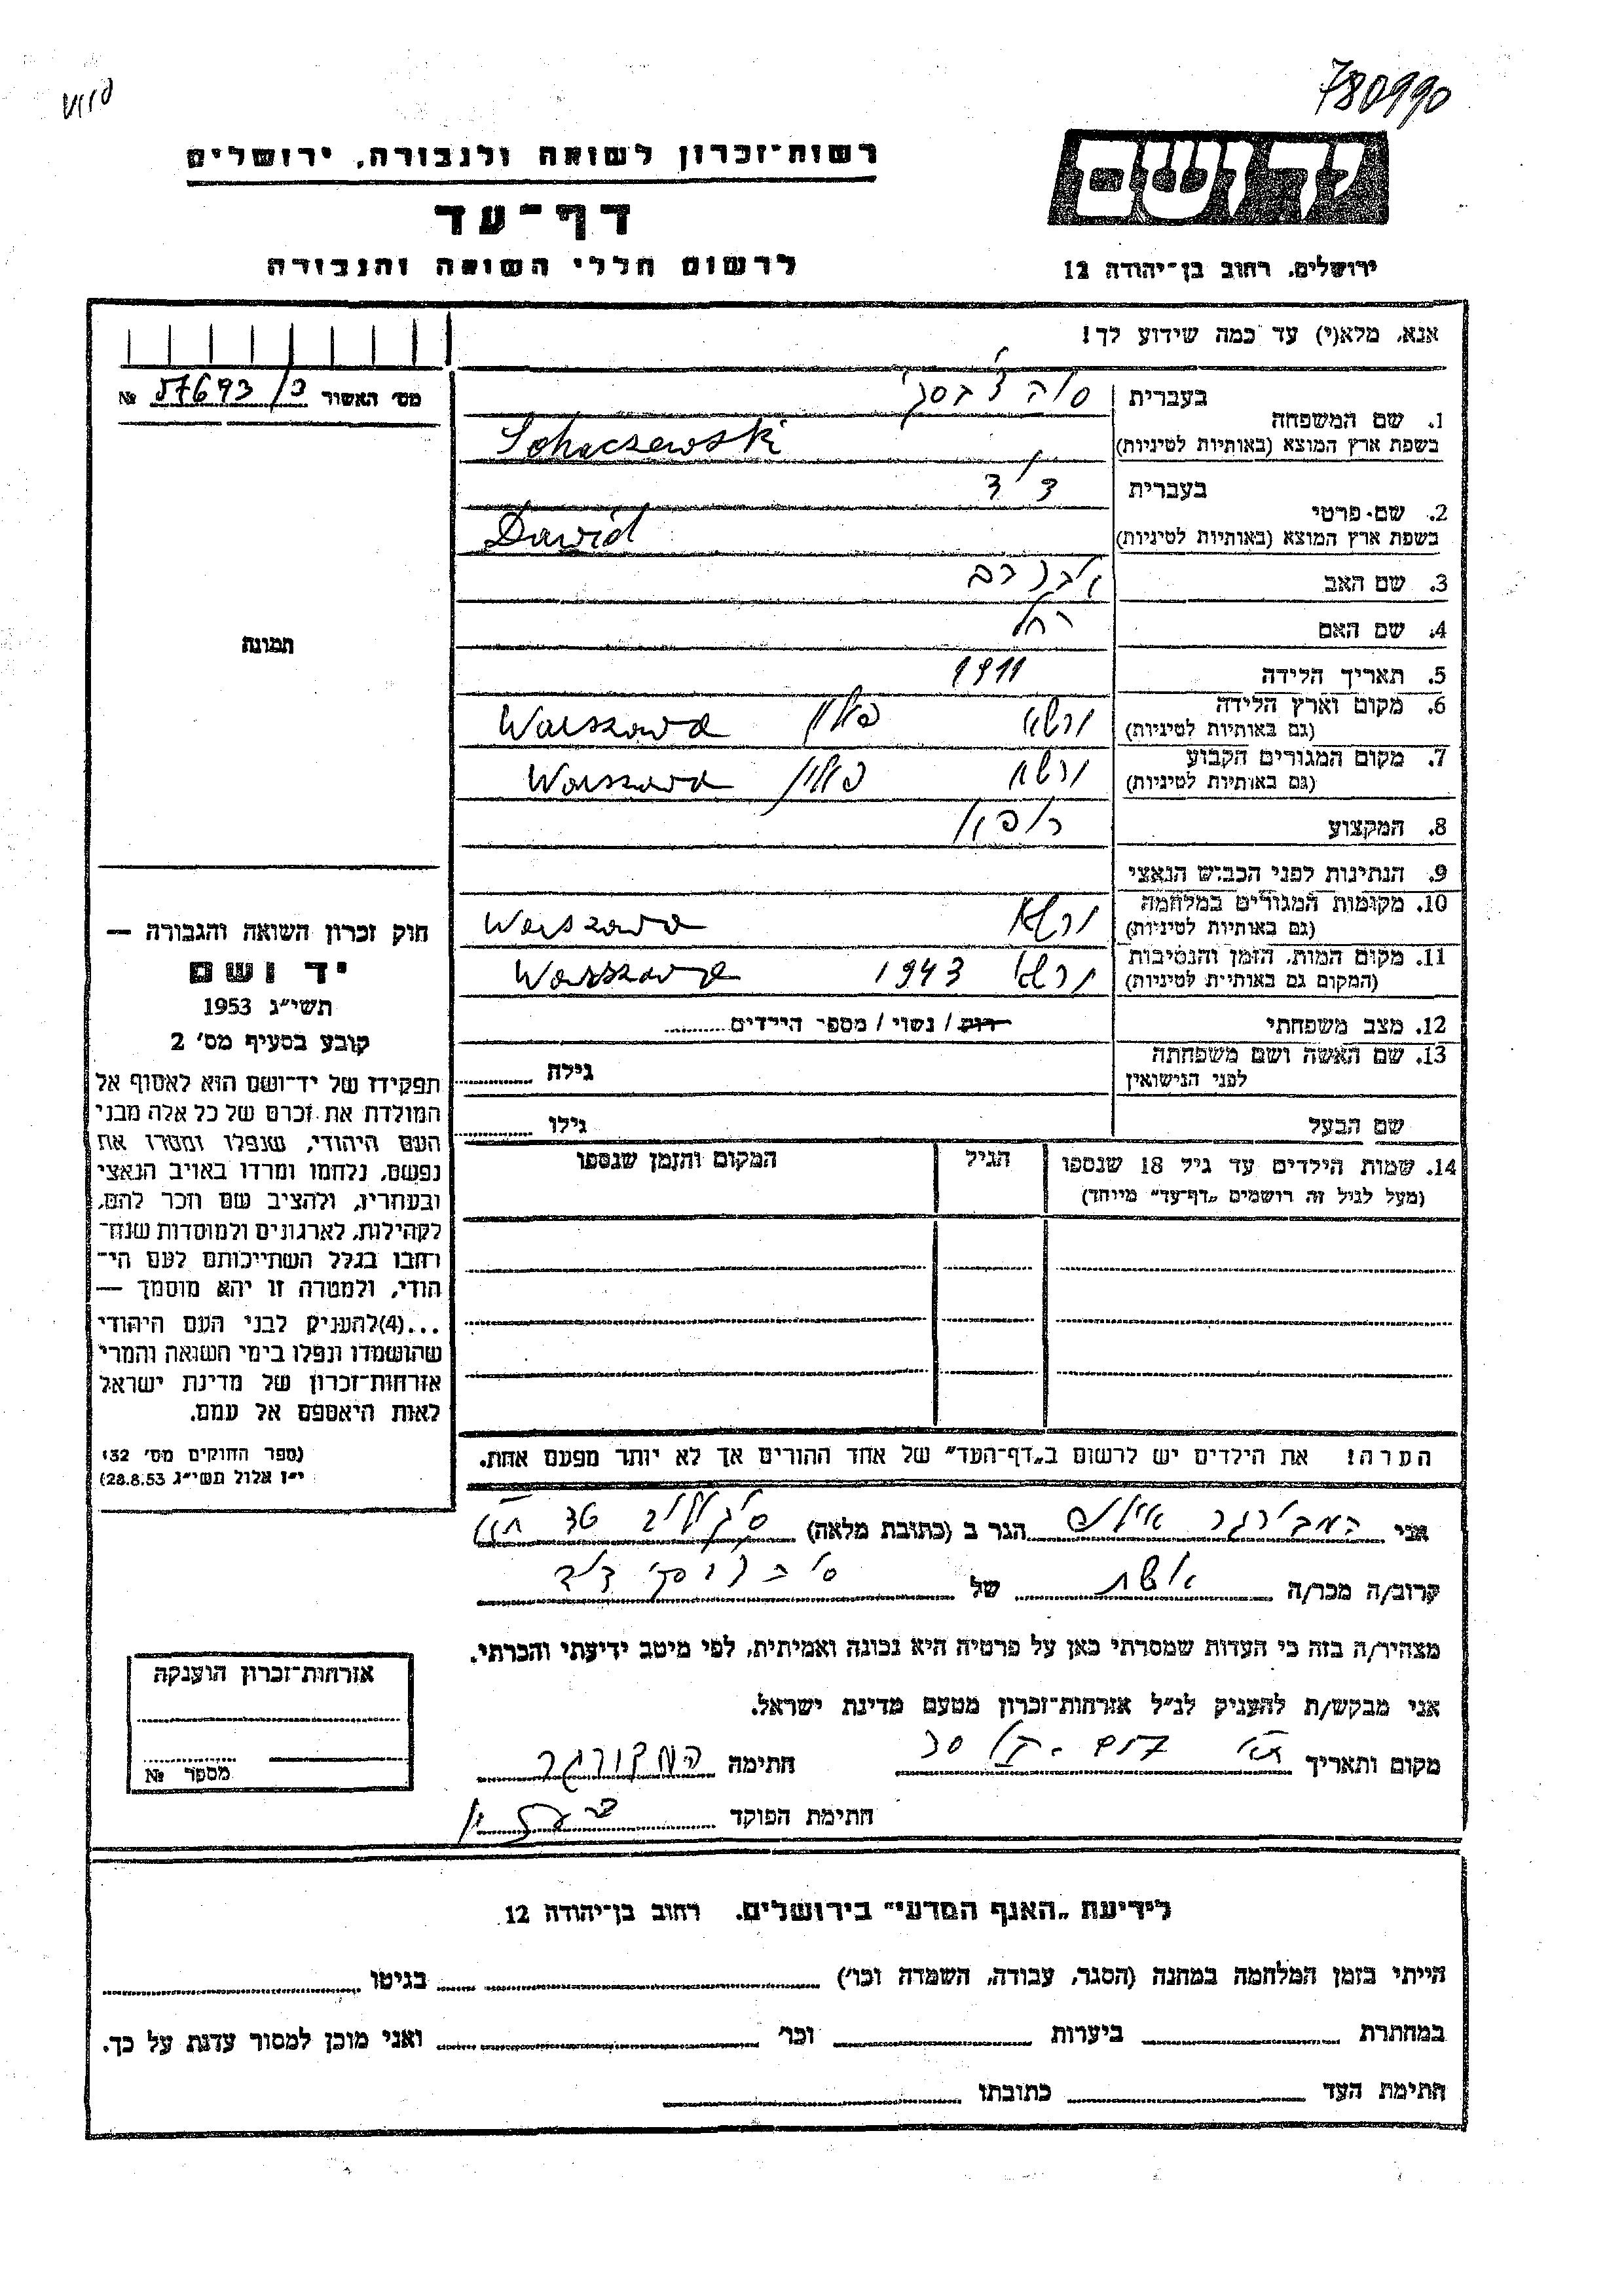 780990
רשות־זכרון לשואה ולגבורה, ירושלים
יד ושם
דף־עד
לרשום חללי השואה והגבורה
ירושלים, רחוב בן־יהודה 12
אנא, מלא(י) עד כמה שידוע לך!
מס׳ האשור № 57693/ג
1. שם המשפחה
בעברית
בשפת ארץ המוצא (באותיות לטיניות) Sohaczewski
2. שם־פרטי
בעברית דוד
בשפת ארץ המוצא (באותיות לטיניות) Dawid
3. שם האב אברהם
4. שם האם רחל
5. תאריך הלידה 1911
6. מקום וארץ הלידה
(גם באותיות לטיניות) ורשא פולין Warszawa
7. מקום המגורים הקבוע
(גם באותיות לטיניות) ורשא פולין Warszawa
8. המקצוע
9. הנתינות לפני הכבוש הנאצי
10. מקומות המגורים במלחמה
(גם באותיות לטיניות) ורשא Warszawa
11. מקום המות, הזמן והנסיבות
(המקום גם באותיות לטיניות) ורשא 1943 Warszawa
12. מצב משפחתי רוק / נשוי / מספר הילדים
13. שם האשה ושם משפחתה
לפני הנישואין
גילה
שם הבעל גילו
14. שמות הילדים עד גיל 18 שנספו הגיל המקום והזמן שנספו
(מעל לגיל זה רושמים „דף־עד״ מיוחד)
הערה! את הילדים יש לרשום ב„דף־העד״ של אחד ההורים אך לא יותר מפעם אחת.
תמונה
חוק זכרון השואה והגבורה —
יד ושם
תשי״ג 1953
קובע בסעיף מס׳ 2
תפקידו של יד־ושם הוא לאסוף אל
המולדת את זכרם של כל אלה מבני
העם היהודי, שנפלו ומסרו את
נפשם, נלחמו ומרדו באויב הנאצי
ובעוזריו, ולהציב שם וזכר להם,
לקהילות, לארגונים ולמוסדות שנח־
רחבו בגלל השתייכותם לעם הי־
הודי, ולמטרה זו יהא מוסמך —
...(4)להעניק לבני העם היהודי
שהושמדו ונפלו בימי השואה והמרי
אזרחות־זכרון של מדינת ישראל
לאות היאספם אל עמם.
(ספר החוקים מס׳ 132
י״ז אלול תשי״ג 28.8.53)
אני המבורגר הגר ב (כתובת מלאה)
קרוב/ה מכר/ה אשת של דוד
מצהיר/ה בזה כי העדות שמסרתי כאן על פרטיה היא נכונה ואמיתית, לפי מיטב ידיעתי והכרתי.
אני מבקש/ת להעניק לנ״ל אזרחות־זכרון מטעם מדינת ישראל.
מקום ותאריך חתימה המבורגר
חתימת הפוקד
אזרחות־זכרון הוענקה
מספר №
לידיעת „האגף המדעי״ בירושלים, רחוב בן־יהודה 12
הייתי בזמן המלחמה במחנה (הסגר, עבודה, השמדה וכו׳) בגיטו
במחתרת ביערות וכו׳ ואני מוכן למסור עדות על כך.
חתימת העד כתובתו